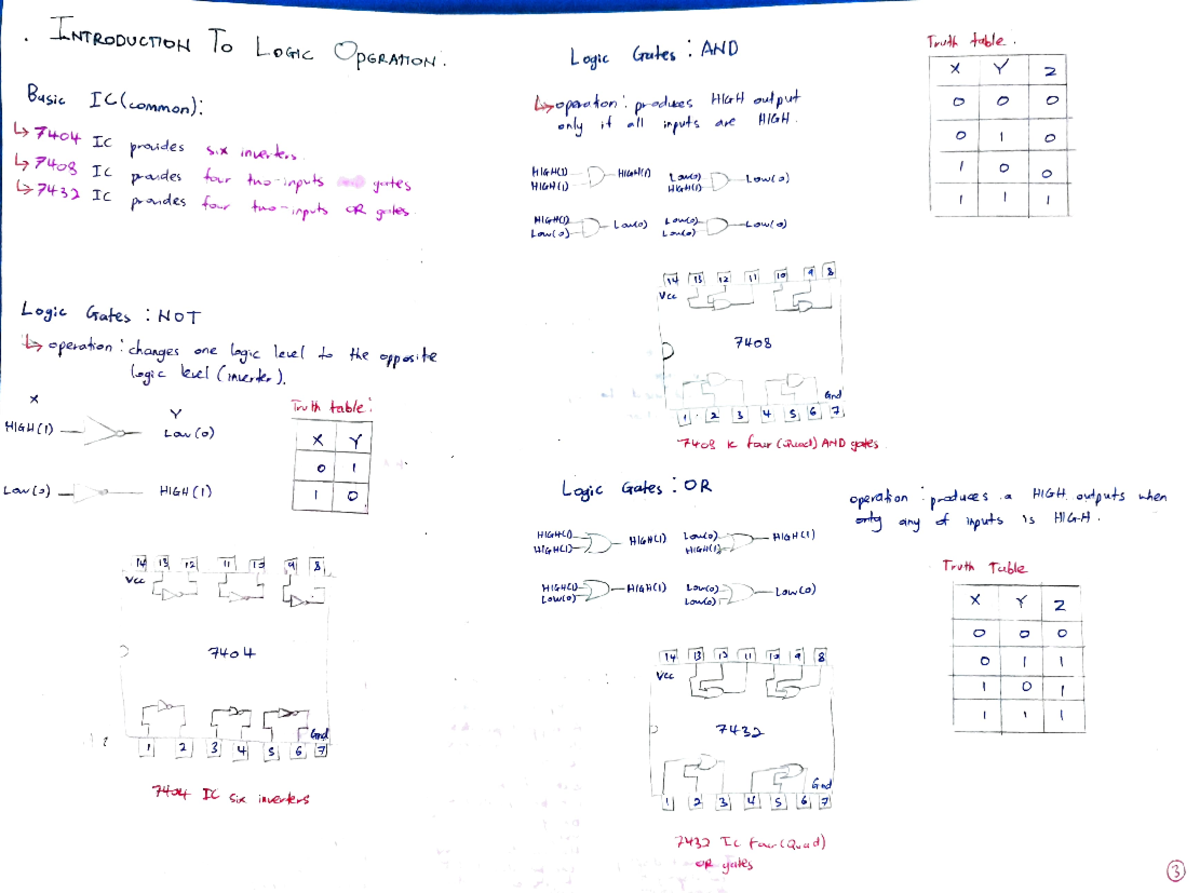 . INTRODUCTION TO LOGIC OPERATION.
Basic IC (common):
↳ 7404 IC provides six inverters.
↳ 7408 IC provides four two-inputs and gates
↳ 7432 IC provides four two-inputs OR gates
Logic Gates : NOT
↳ operation : changes one logic level to the opposite
logic level (inverter).
X Y
HIGH(1) Low(0)
Low(0) HIGH(1)
Truth table:
X Y
0 1
1 0
14 13 12 11 10 9 8
Vcc
7404
Gnd
1 2 3 4 5 6 7
7404 IC six inverters
Logic Gates : AND
↳ operation : produces HIGH output
only if all inputs are HIGH.
HIGH(1) HIGH(1) Low(0) Low(0)
HIGH(1) HIGH(1)
HIGH(1) Low(0) Low(0) Low(0)
Low(0) Low(0)
Truth table.
X Y Z
0 0 0
0 1 0
1 0 0
1 1 1
14 13 12 11 10 9 8
Vcc
7408
Gnd
1 2 3 4 5 6 7
7408 IC four (Quad) AND gates
Logic Gates : OR
operation : produces a HIGH outputs when
only any of inputs is HIGH.
HIGH(1) HIGH(1) Low(0) HIGH(1)
HIGH(1) HIGH(1)
HIGH(1) HIGH(1) Low(0) Low(0)
Low(0) Low(0)
Truth Table
X Y Z
0 0 0
0 1 1
1 0 1
1 1 1
14 13 12 11 10 9 8
Vcc
7432
Gnd
1 2 3 4 5 6 7
7432 IC four (Quad)
OR gates
3